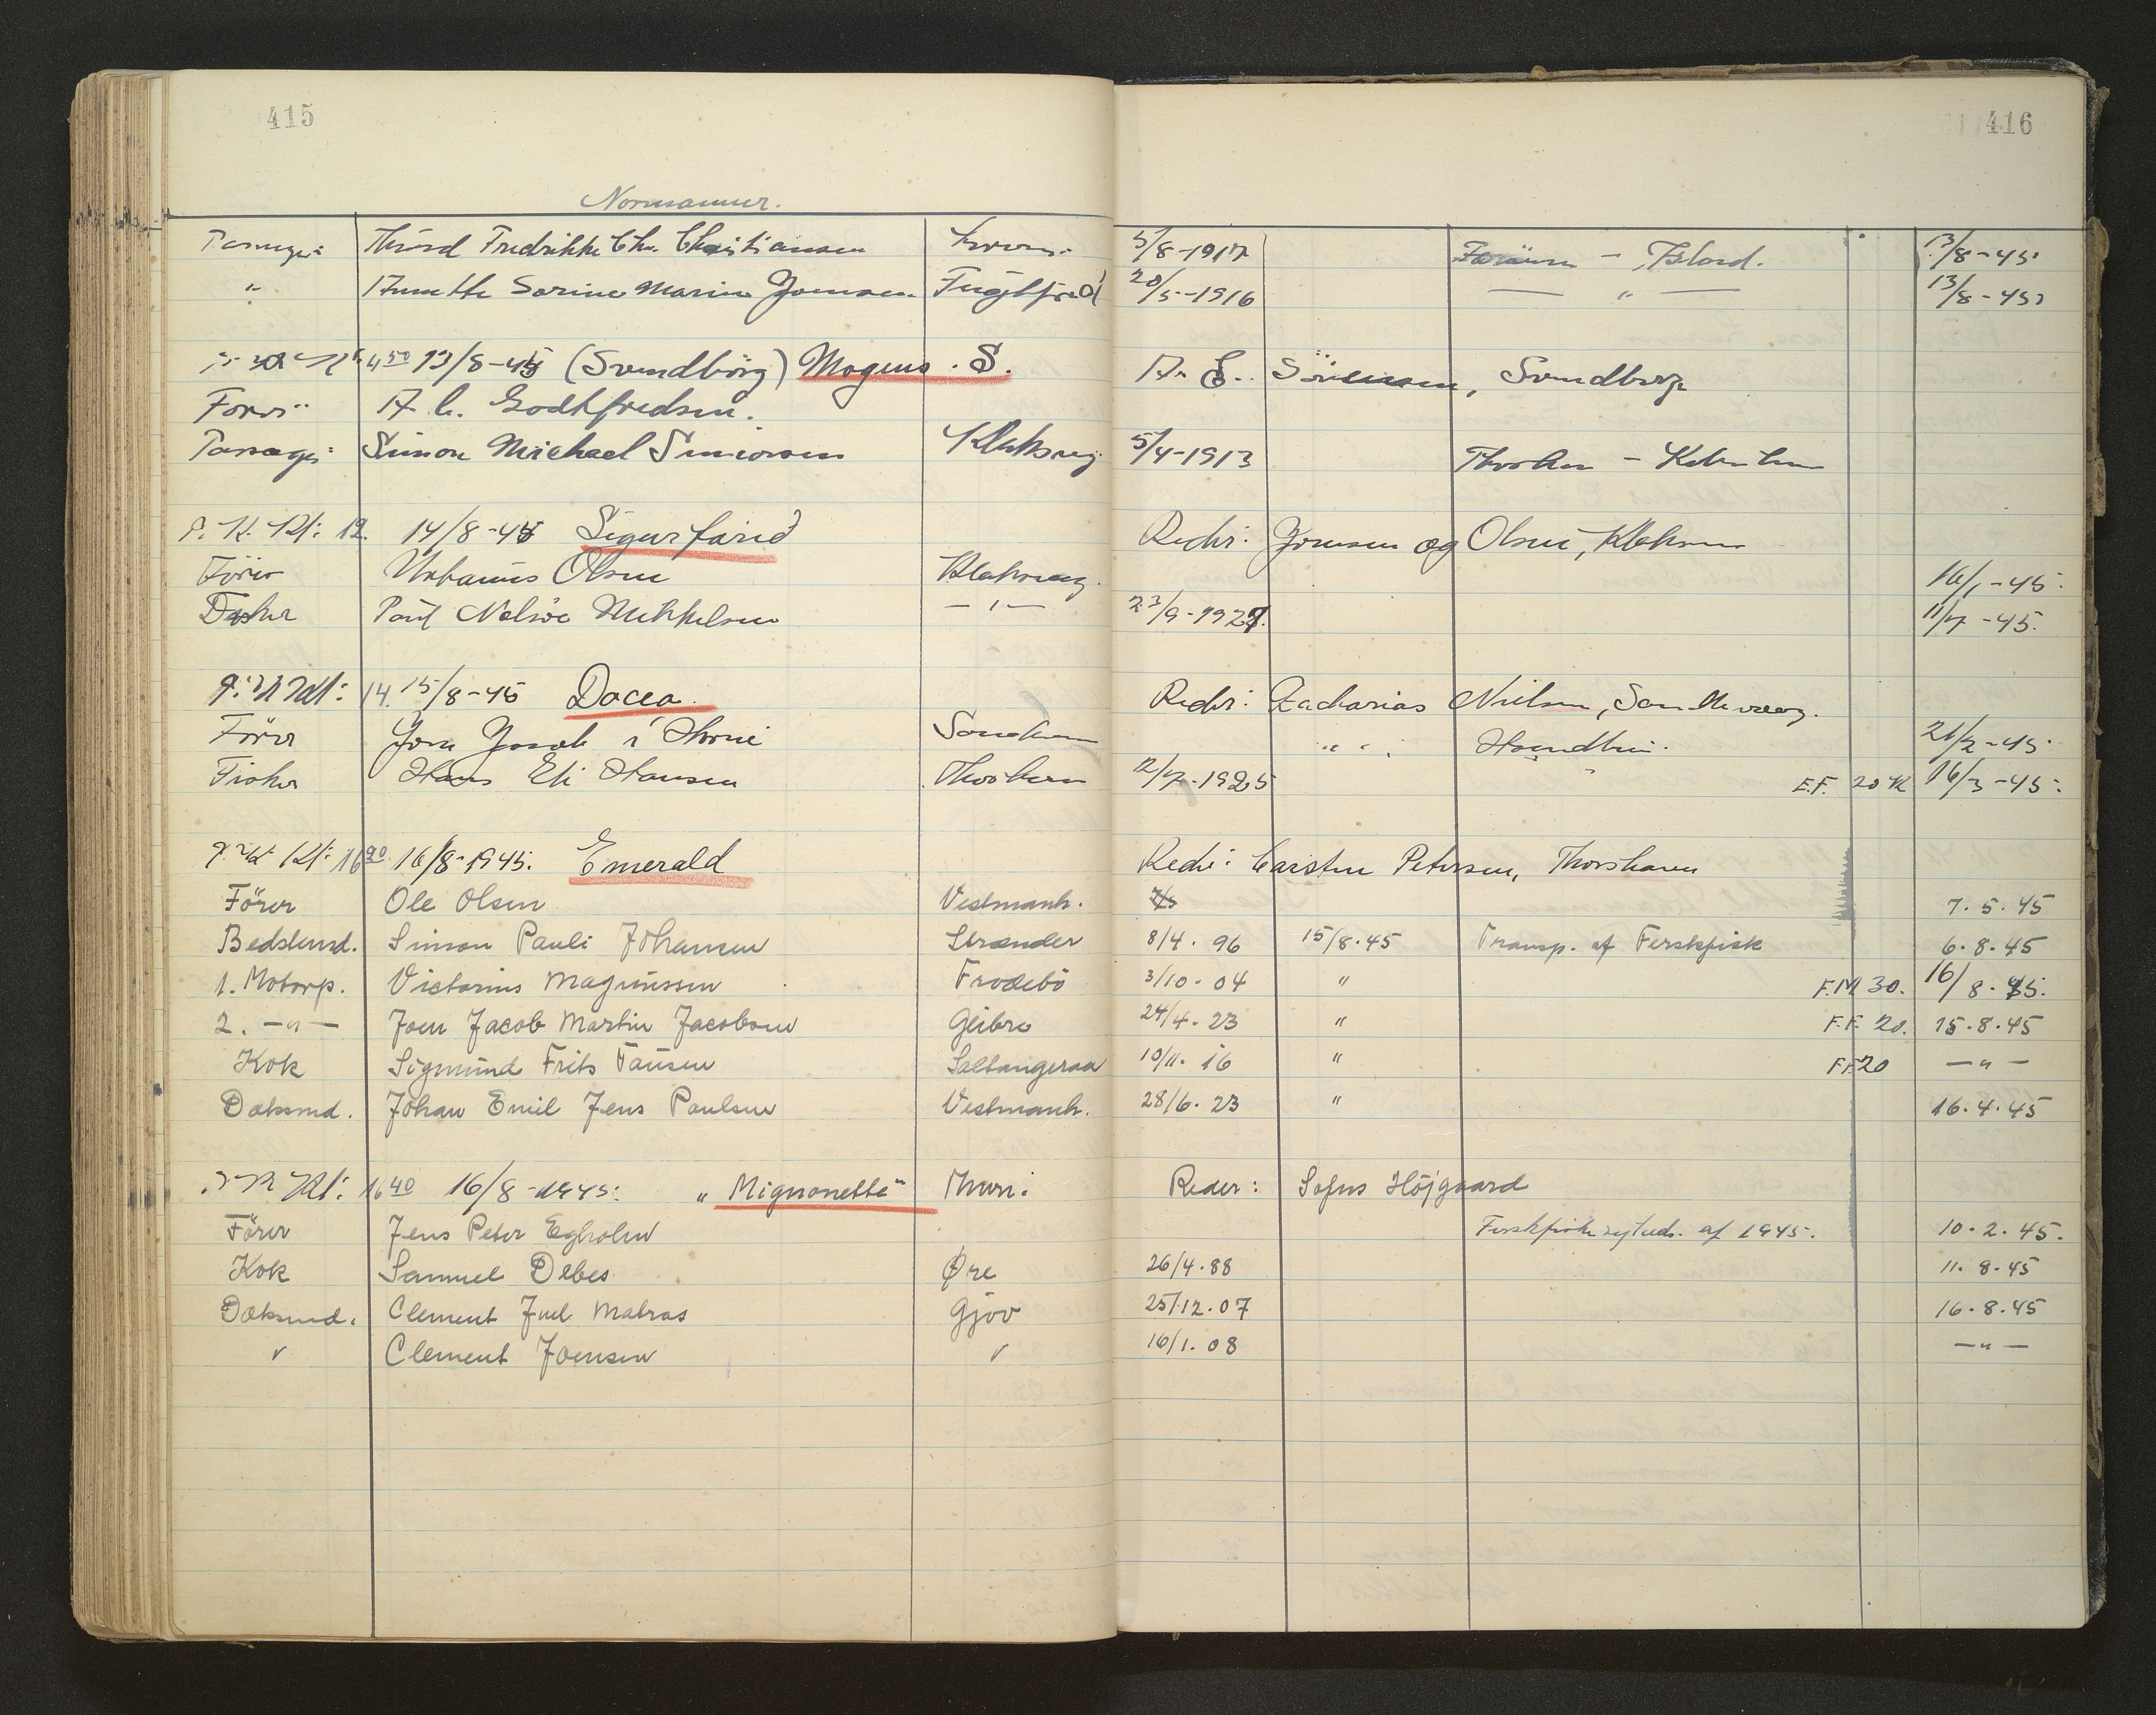 415
416
Normanner.
Fredrikke Chr. Christiansen 5/8-1917 Færöerne - Island. 13/8-45
" Annette Sorine Marin Joensen Fuglefjord 20/5-1916 — " — 13/8-45
4 50 13/8-45 (Svendborg) Mogens . S. A. E. Sörensen, Svendborg
Förer A. C. Godtfredsen.
Passager Simon Michael Simonsen Klaksvig 5/4-1913 Thorshavn - København
Kl: 12. 14/8-45 Sigurfarið Reder: Joensen og Olsen, Klaksvig
Förer Urbanus Olsen Klaksvig. 16/1-45.
Poul Nolsöe Mikkelsen — " — 23/9-1927. 11/7-45.
Kl: 14. 15/8-45 Dacea. Reder: Zacharias Nielsen,
Förer Jacob í Sandavaag " " 21/2-45
Fisker Hans Eli Hansen Thorshavn 12/7-1925 E.F. 20 K 16/3-45.
Kl: 16 20 16/8-1945. Emerald Reder: Carsten Petersen, Thorshavn
Förer Ole Olsen Vestmanh. 7.5.45
Bedstemd. Simon Pauli Johansen Strænder 8/4. 96 15/8.45 Transp. af Ferskfisk 6.8.45
1. Motorp. Victorius Magnussen Frodebö 3/10. 04 " F.M 30. 16/8.45.
2. —"— Joen Jacob Martin Jacobsen Glibre 24/4. 23 " F.F. 20. 15.8.45
Kok Sigmund Frits Hansen Saltangeraa 10/11. 16 " F.F. 20 —"—
Doksmd. Johan Emil Jens Poulsen Vestmanh. 28/6. 23 " 16.4.45
Kl: 16 40 16/8-1945. „Mignonette" Reder: Sofus Höjgaard
Förer Jens Peter Egholm af 1945. 10.2.45.
Kok Samuel Debes Øre 26/4.88 11.8.45
Doksmd. Clement Juel Matras Gjov 25/12.07 16.8.45
" Clement Joensen " 16/1.08 —"—